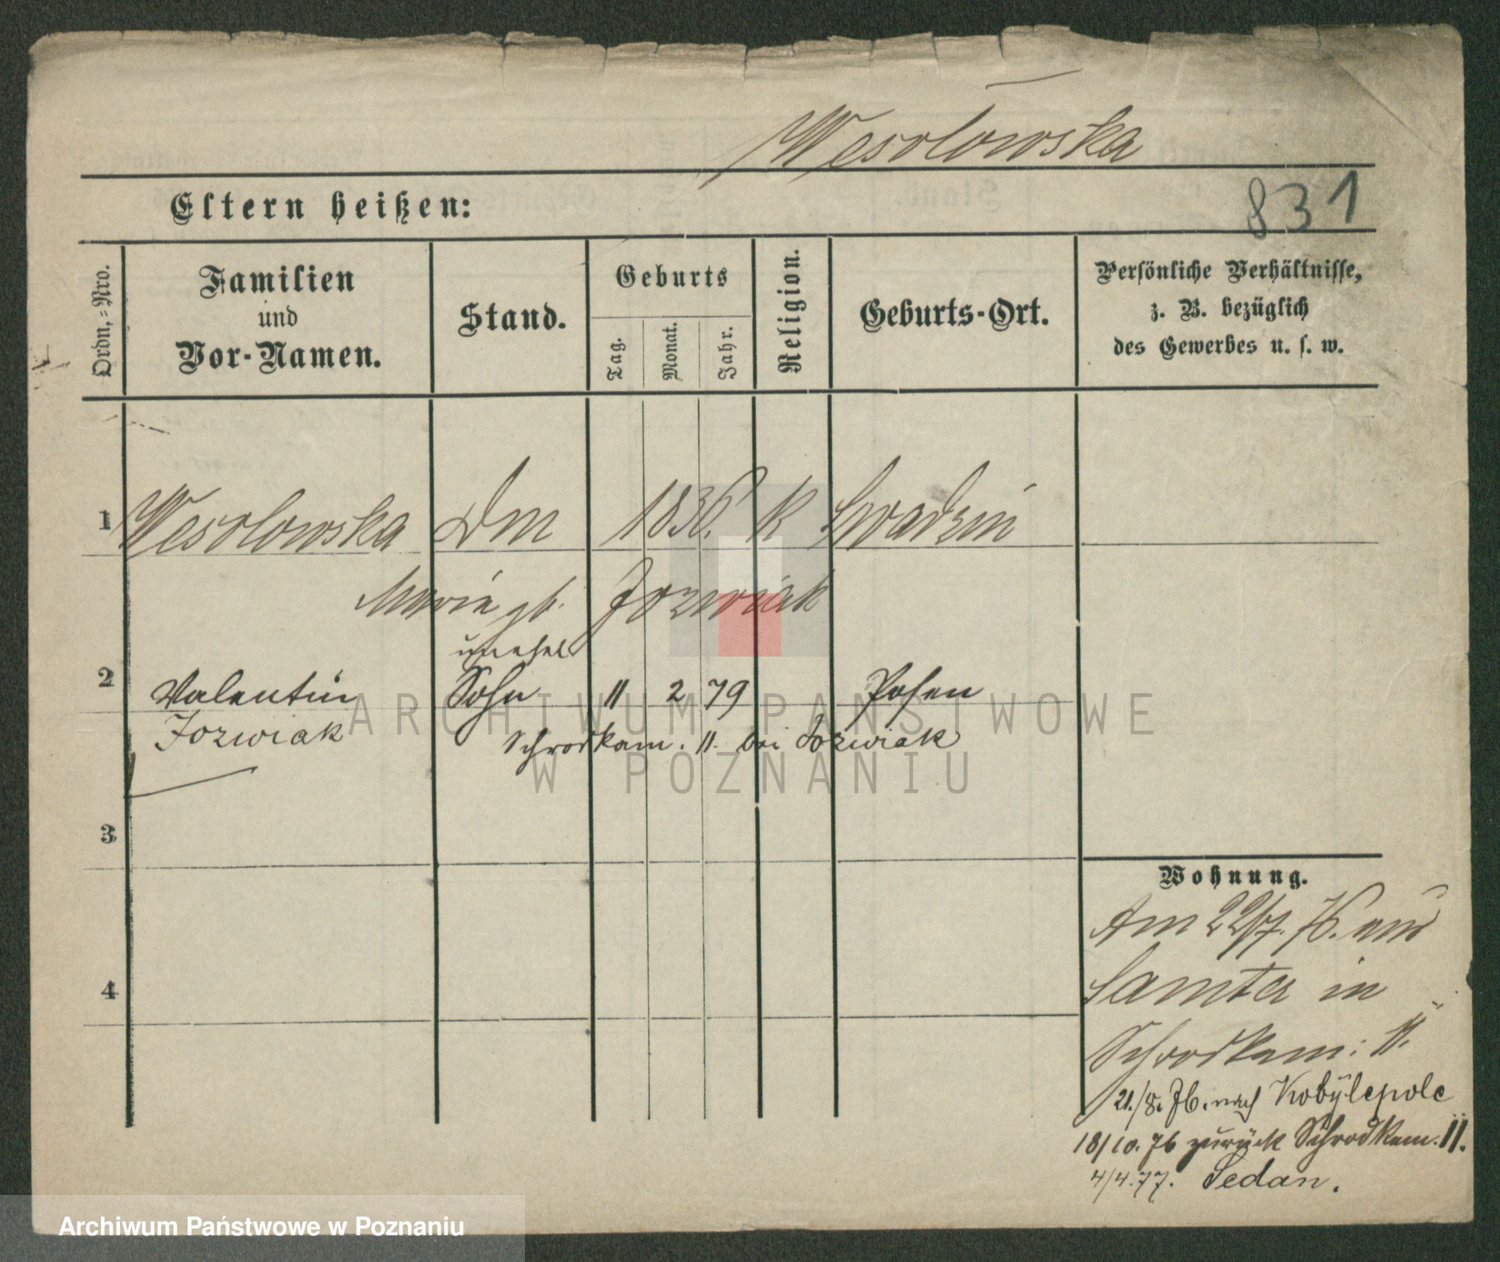 Wesolowska
Eltern heißen:
831
Ordn.-Nro.
Familien
und
Vor-Namen.
Stand.
Geburts
Tag.
Monat.
Jahr.
Religion.
Geburts-Ort.
Persönliche Verhältnisse,
z. B. bezüglich
des Gewerbes u. s. w.
1 Wesolowska Dm 1836. K
Marie gb. Jozwiak
unehel
2 Valentin Sohn 11 2 79 Posen
Jozwiak
Schrodkam. 11. bei Jozwiak
3
4
Wohnung.
Am 22/7. 76. aus
Samter in
Schrodkam: 11.
21./8. 76. nach Kobylepole
18/10. 76 zurück Schrodkam. 11.
4/4.77. Sedan.
ARCHIWUM PAŃSTWOWE
W POZNANIU
Archiwum Państwowe w Poznaniu